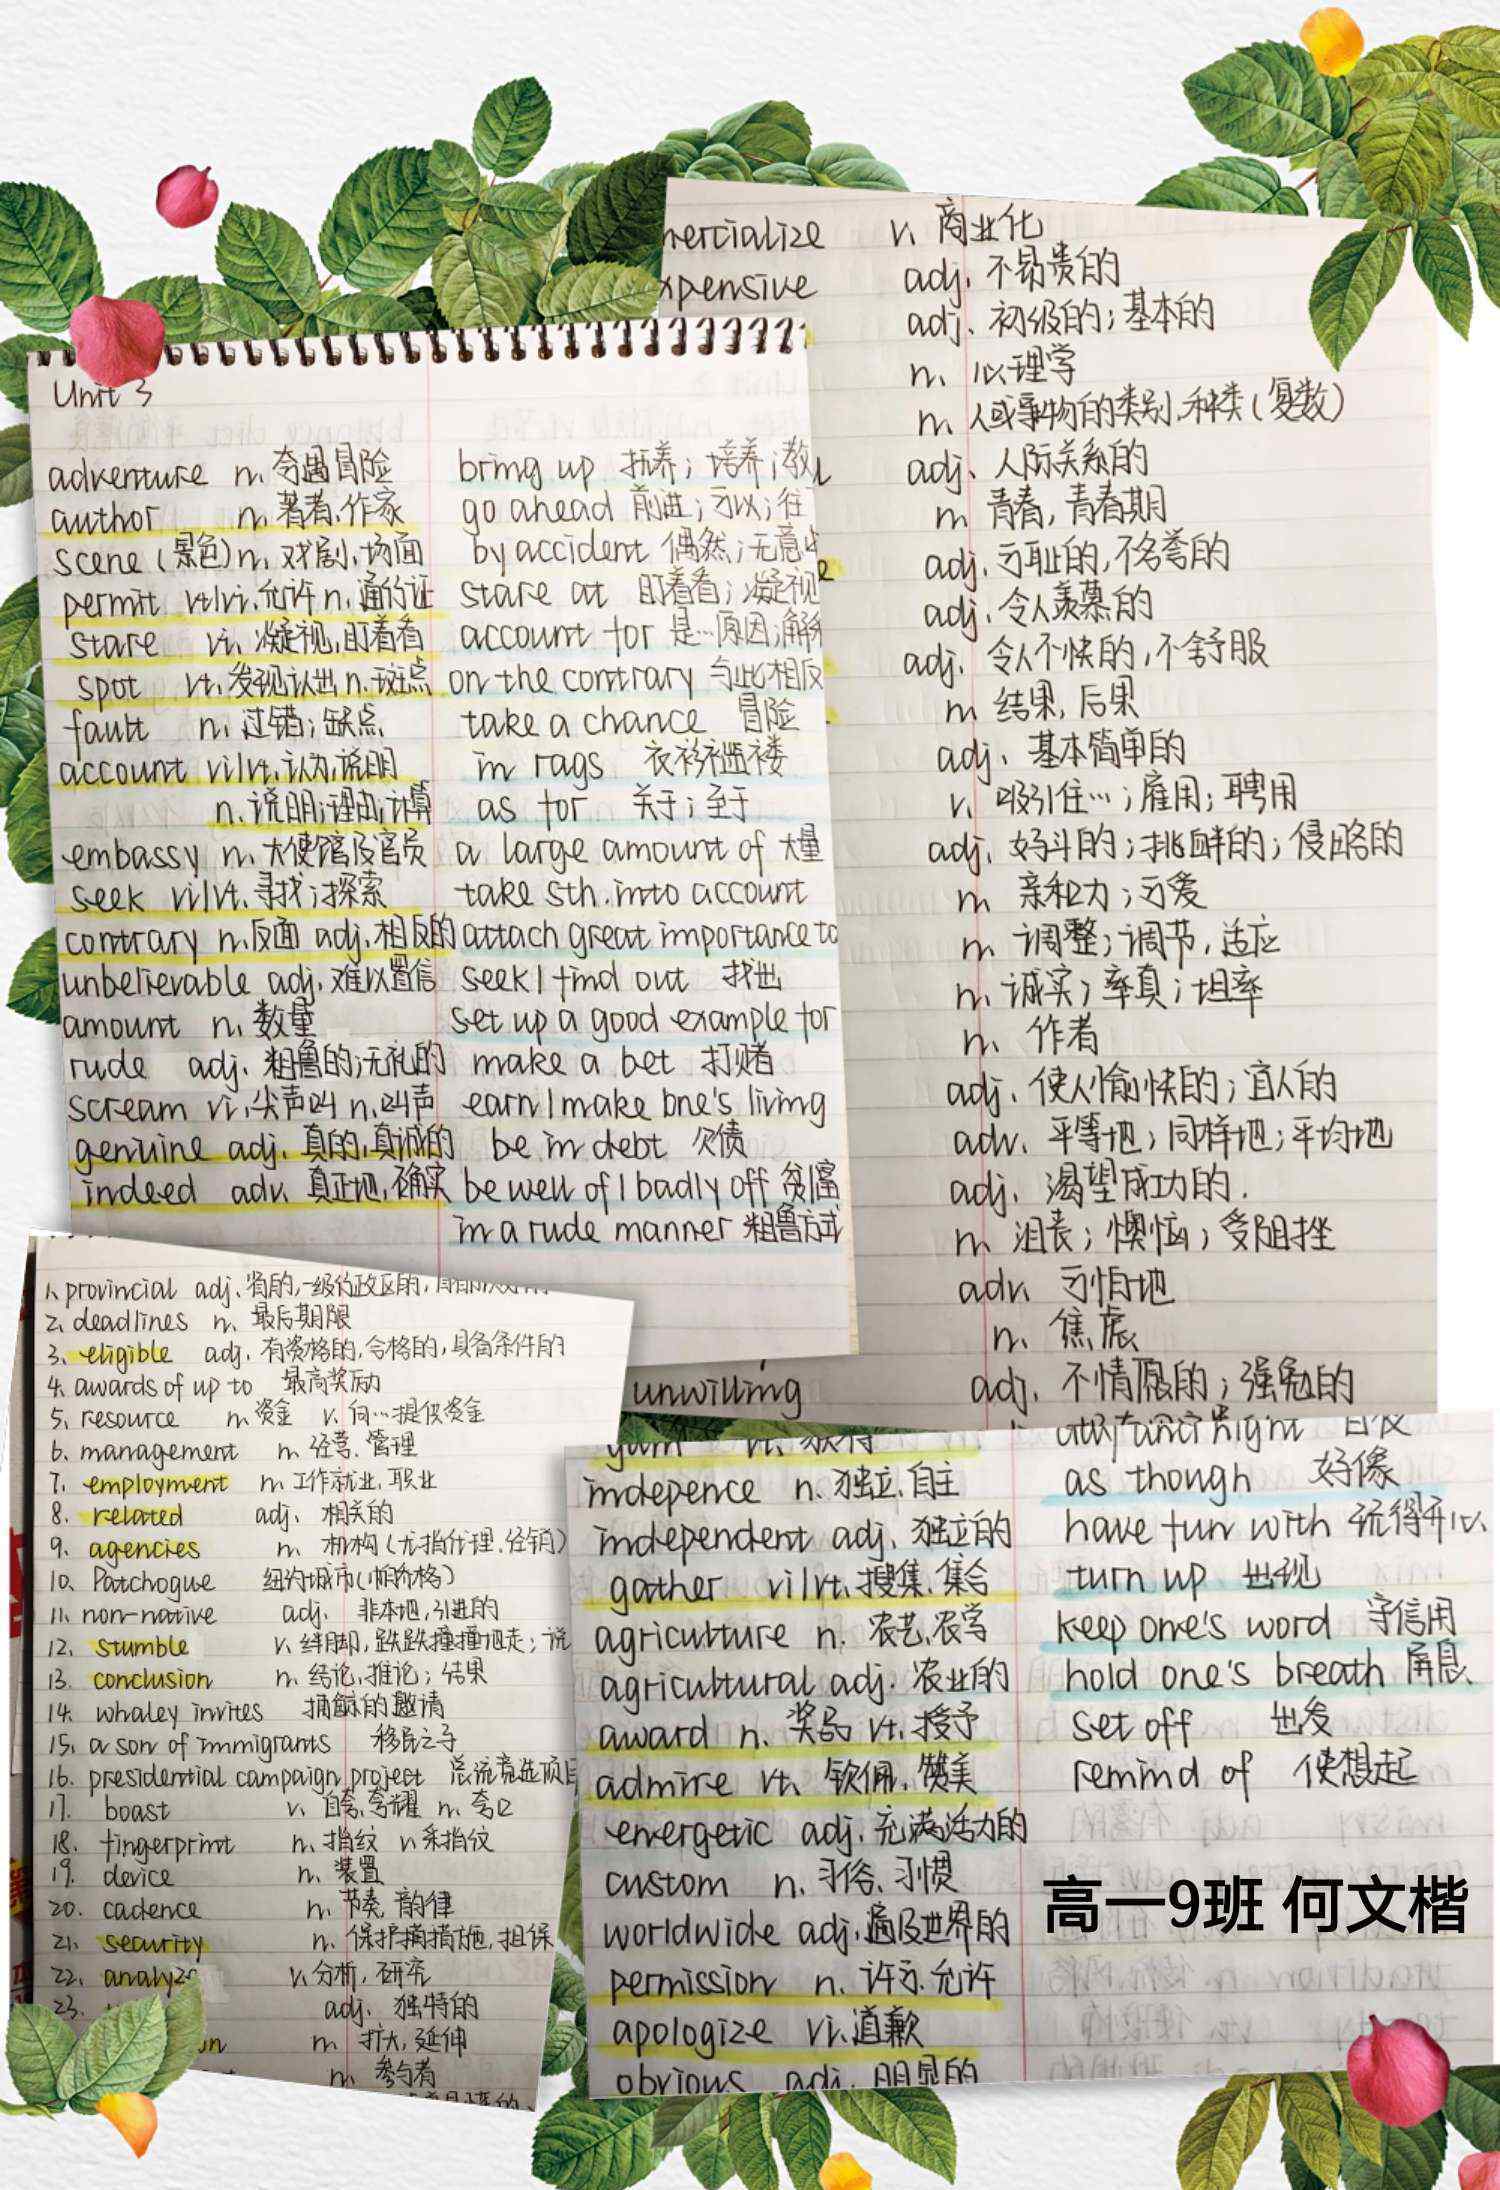 v. 商业化
adj. 不昂贵的
adj. 初级的；基本的
n. 心理学
n. 人或事物的类别、种类(复数)
adj. 人际关系的
n. 青春, 青春期
adj. 可耻的, 不名誉的
adj. 令人羡慕的
adj. 令人不快的, 不舒服
n. 结果, 后果
adj. 基本简单的
v. 吸引住…；雇用；聘用
adj. 好斗的；挑衅的；侵略的
n. 亲和力；可爱
n. 调整；调节, 适应
n. 诚实；率真；坦率
n. 作者
adj. 使人愉快的；宜人的
adv. 平等地；同样地；平均地
adj. 渴望成功的.
n. 沮丧；懊恼；受阻挫
adv. 可怕地
n. 焦虑
unwilling adj. 不情愿的；强勉的
Unit 3
adventure n. 奇遇冒险
author n. 著者、作家
scene (景色) n. 戏剧、场面
permit vt/vi. 允许 n. 通行证
stare vi. 凝视, 盯着看
spot vt. 发现认出 n. 斑点
fault n. 过错；缺点
account vi/vt. 认为, 说明
n. 说明；理由；计算
embassy n. 大使馆及官员
seek vi/vt. 寻找；探索
contrary n. 反面 adj. 相反的
unbelievable adj. 难以置信
amount n. 数量
rude adj. 粗鲁的；无礼的
scream vi. 尖声叫 n. 叫声
genuine adj. 真的, 真诚的
indeed adv. 真正地, 确实
bring up 抚养；培养；教
go ahead 前进；可以；往
by accident 偶然；无意中
stare at 盯着看；凝视
account for 是…原因；解
on the contrary 与此相反
take a chance 冒险
in rags 衣衫褴褛
as for 关于；至于
a large amount of 大量
take sth. into account
attach great importance to
seek / find out 找出
set up a good example for
make a bet 打赌
earn / make one's living
be in debt 欠债
be well of / badly off 贫/富
in a rude manner 粗鲁方式
1. provincial adj. 省的, 一级行政区的,
2. deadlines n. 最后期限
3. eligible adj. 有资格的, 合格的, 具备条件的
4. awards of up to 最高奖励
5. resource n. 资金 v. 向…提供资金
6. management n. 经营、管理
7. employment n. 工作就业, 职业
8. related adj. 相关的
9. agencies n. 机构(尤指代理、经销)
10. Patchogue 纽约城市(帕乔格)
11. non-native adj. 非本地, 引进的
12. stumble v. 绊脚, 跌跌撞撞地走；说
13. conclusion n. 结论, 推论；结果
14. whaley invites 捕鲸的邀请
15. a son of immigrants 移民之子
16. presidential campaign project 总统竞选项目
17. boast v. 自夸、夸耀 n. 夸口
18. fingerprint n. 指纹 v. 采指纹
19. device n. 装置
20. cadence n. 节奏, 韵律
21. security n. 保护措施, 担保
22. analyze v. 分析, 研究
23. adj. 独特的
n. 扩大, 延伸
n. 参与者
gain vt. 获得
indepence n. 独立、自主
independent adj. 独立的
gather vi/vt. 搜集、集合
agriculture n. 农艺、农学
agricultural adj. 农业的
award n. 奖品 vt. 授予
admire vt. 钦佩、赞美
energetic adj. 充满活力的
custom n. 习俗、习惯
worldwide adj. 遍及世界的
permission n. 许可、允许
apologize vi. 道歉
obvious adj. 明显的
as though 好像
have fun with 玩得开心
turn up 出现
keep one's word 守信用
hold one's breath 屏息
set off 出发
remind of 使想起
高一9班 何文楷